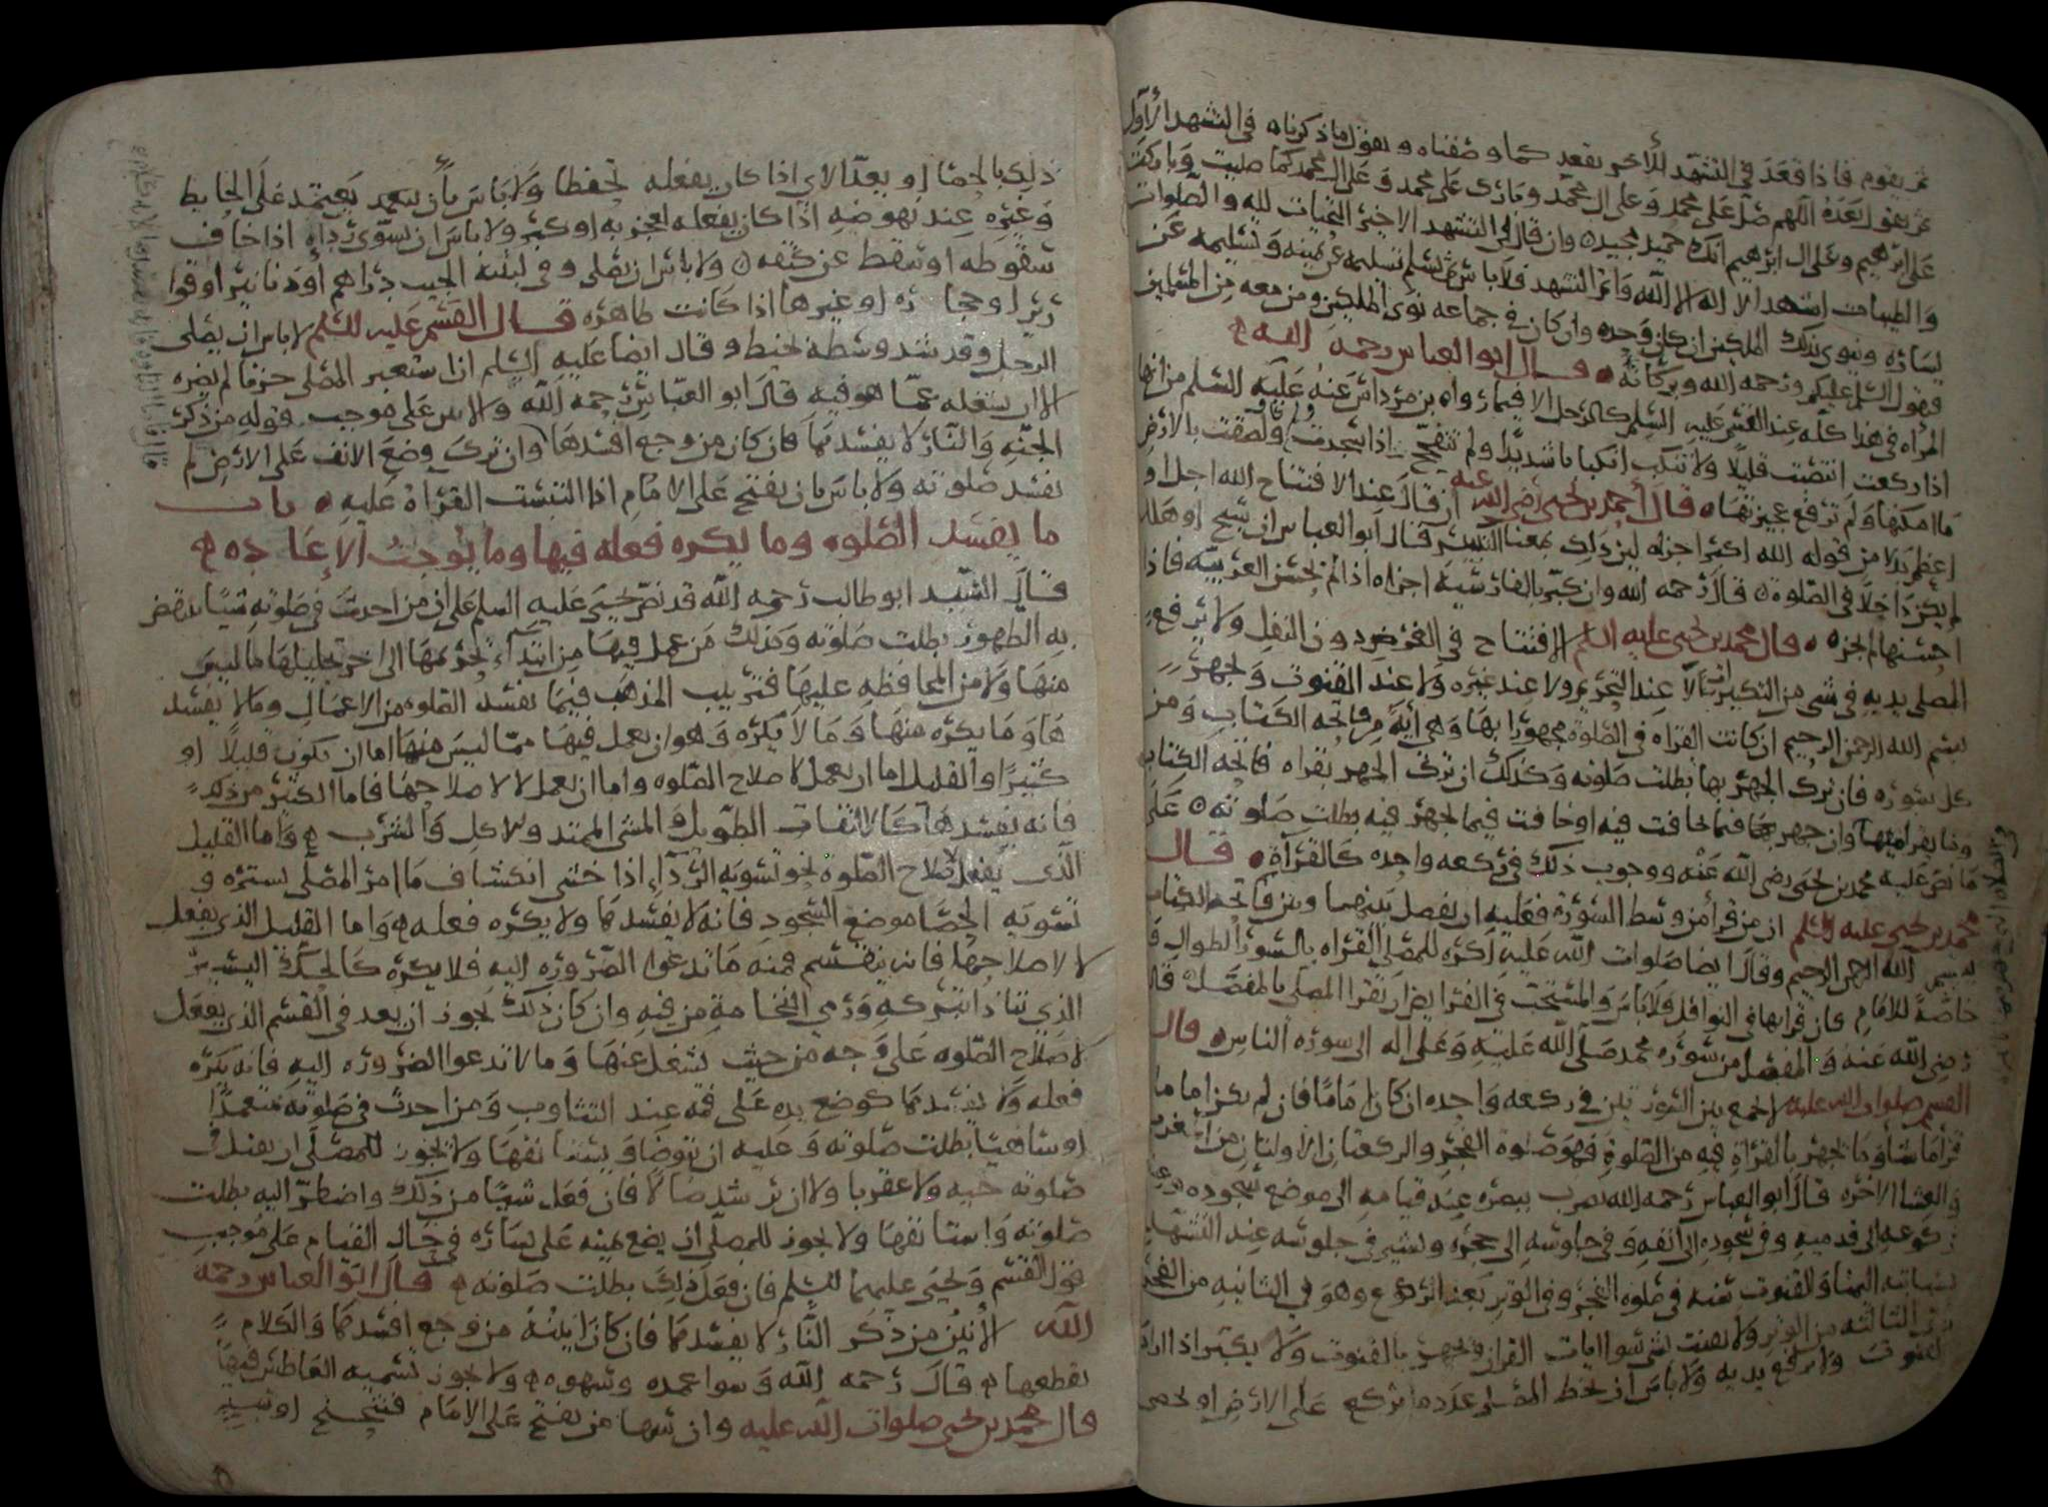 ثم يقوم فاذا قعد في التشهد الأخر يقعد كما وصفناه ويقول ما ذكرناه في التشهد الأول
ثم يقول بعده اللهم صل على محمد وعلى ال محمد وبارك على محمد وعلى ال محمد كما صليت وباركت
على ابرهيم وعلى ال ابرهيم انك حميد مجيد وان قال في التشهد الاخير التحيات لله والصلوات
والطيبات اشهد ان لا اله الا الله واتم التشهد فلا باس ثم يسلم تسليمه عن يمينه وتسليمه عن
يساره وينوي بذلك الملكين ان كان وحده وان كان في جماعه نوى الملكين ومن معه من المسلمين
فيقول السلم عليكم ورحمه الله وبركاته قال ابو العباس رحمه الله
المرأه في هذا كله عند القسم عليه السلم كالرجل الا فيما رواه بن مرداس عنه عليه السلم من انها
اذا ركعت انتصبت قليلا ولا تنكب انكبابا شديدا ولم تتفحج اذا سجدت ولصقت بالارض
ما امكنها ولم ترفع عجيزتها قال أحمد بن يحيى رضي الله عنه ان قال عند الافتتاح الله اجل او
اعظم بدلا من قوله الله اكبر اجزاه لان ذلك بمعنا التكبير قال ابو العباس ان سبح او هلل
لم يكن داخلا في الصلوة قال رحمه الله وان كبر بالفارسيه اجزاه اذا لم يحسن العربيه فاذا
احسنها لم يجزه قال محمد بن يحيى عليه السلم الافتتاح في الفرض دون النفل ولا يرفع
المصلي يديه في شي من التكبيرات الا عند التحريم ولا عند غيره ولا عند القنوت ويجهر
ببسم الله الرحمن الرحيم ان كانت القراه في الصلوة مجهورا بها وهي آية من فاتحه الكتاب ومن
كل سوره فان ترك الجهر بها بطلت صلوته وكذلك ان ترك الجهر بقراه فاتحه الكتاب
وما يقرا معها وان جهر بها فيما يخافت فيه او خافت فيما يجهر فيه بطلت صلوته على
ما نص عليه محمد بن يحيى رضي الله عنه ووجوب ذلك في ركعه واحده كالقرآة قال
محمد بن يحيى عليه السلم ان من قرأ من وسط السورة فعليه ان يفصل بينهما وبين فاتحه الكتاب
ببسم الله الرحمن الرحيم وقال ايضا صلوات الله عليه اكره للمصلي القراه بالسور الطوال
خاصة للامام فان قرابها في النوافل فلا باس والمستحب في الفرايض ان يقرا المصلي بالمفصل قال
رضي الله عنه والمفصل من سوره محمد صلى الله عليه وعلى اله الى سوره الناس قال
القسم صلوات الله عليه لا يجمع بين السورتين في ركعه واحده ان كان اماما فان لم يكن اماما
قرا ما شا وما يجهر بالقراة فيه من الصلوة فهو صلوة الفجر والركعتان الاولتان من المغرب
والعشا الاخره قال ابو العباس رحمه الله يضرب ببصره عند قيامه الى موضع سجوده وعند
ركوعه الى قدميه وفي سجوده الى انفه وفي جلوسه الى حجره ويشير في جلوسه عند التشهد
بسبابته اليمنا والقنوت سنه في صلوه الفجر وفي الوتر بعد الركوع وهو في الثانيه من الفجر
وفي الثالثه من الوتر ولا يقنت بشي سوا ايات القران ويجهر بالقنوت ولا يكبر اذا اراد
القنوت ولا يرفع يديه ولا باس ان يخط المصلي عدد ما يركع على الارض او يحصي
ذلك بالحصا او بعد الاي اذا كان يفعله تحفظا ولا باس بأن يتعمد يعتمد على الحايط
وغيره عند نهوضه اذا كان يفعله لعجز به او كبر ولا باس ان يسوي رداه اذا خاف
سقوطه او سقط عن كتفه ولا باس ان يصلي وفي لبنة الجيب دراهم أو دنانير او قوا
رير او حجاره او غيرها اذا كانت طاهره قال القسم عليه السلم لا باس ان يصلي
الرجل وقد شد وسطه بخيط وقال ايضا عليه السلم اذا استعبر المصلي حزنا لم يضره
الا ان يشغله عما هو فيه قال ابو العباس رحمه الله والانين على موجب قوله من ذكر
الجنه والنار لا يفسدها فان كان من وجع افسدها وان ترك وضع الانف على الارض لم
تفسد صلوته ولا باس بان يفتح على الامام اذا التبست القرأة عليه باب
ما يفسد الصلوه وما يكره فعله فيها وما يوجب الإعاده
قال السيد ابو طالب رحمه الله قد نص يحيى عليه السلم على ان من احدث في صلوته شيئا ينقض
به الطهور بطلت صلوته وكذلك من عمل فيها من ابتداء تحريمها الى اخر تحليلها ما ليس
منها ولا من المحافظه عليها فترتيب المذهب فيما يفسد الصلوه من الاعمال وما لا يفسد
ها وما يكره منها وما لا يكره وهو ان يعمل فيها مما ليس منها اما ان يكون قليلا او
كثيرا والقليل اما ان يعمل لاصلاح الصلوه واما ان يعمل لا لاصلاحها فاما الكثير من ذلك
فانه يفسدها كالالتفات الطويل والمشي الممتد والاكل والشرب واما القليل
الذي يفعل لاصلاح الصلوه نحو تسويه الردآء اذا خشي انكشاف ما امر المصلي بستره و
تسويه الحصا موضع السجود فانه لا يفسدها ولا يكره فعله واما القليل الذي يفعل
لا لاصلاحها فانه ينقسم فمنه ما تدعوا الضروره اليه فلا يكره كالحكة اليسير
الذي يتاذا بتركه ورمي النخامة من فيه وان كان ذلك يجوز ان يعد في القسم الذي يفعل
لاصلاح الصلوه على وجه من حيث تشغل عنها وما لا تدعوا الضروره اليه فانه يكره
فعله ولا يفسدها كوضع يده على فمه عند التثاوب ومن احدث في صلوته متعمدا
او ساهيا بطلت صلوته وعليه ان يتوضا ويستانفها ولا يجوز للمصلي ان يقتل في
صلوته حيه ولا عقربا ولا ان يرشد ضالا فان فعل شيئا من ذلك واضطر اليه بطلت
صلوته واستانفها ولا يجوز للمصلي ان يضع يمينه على يساره في حال القيام على موجب
قول القسم ويحيى عليهما السلم فان فعل ذلك بطلت صلوته قال ابو العباس رحمه
الله الانين من ذكر النار لا يفسدها فان كان انينه من وجع افسدها والكلام
يقطعها قال رحمه الله وسوا عمده وسهوه ولا يجوز تسميه العاطس فيها
قال محمد بن يحيى صلوات الله عليه وان سها من يفتح على الامام فتنحنح او سبح